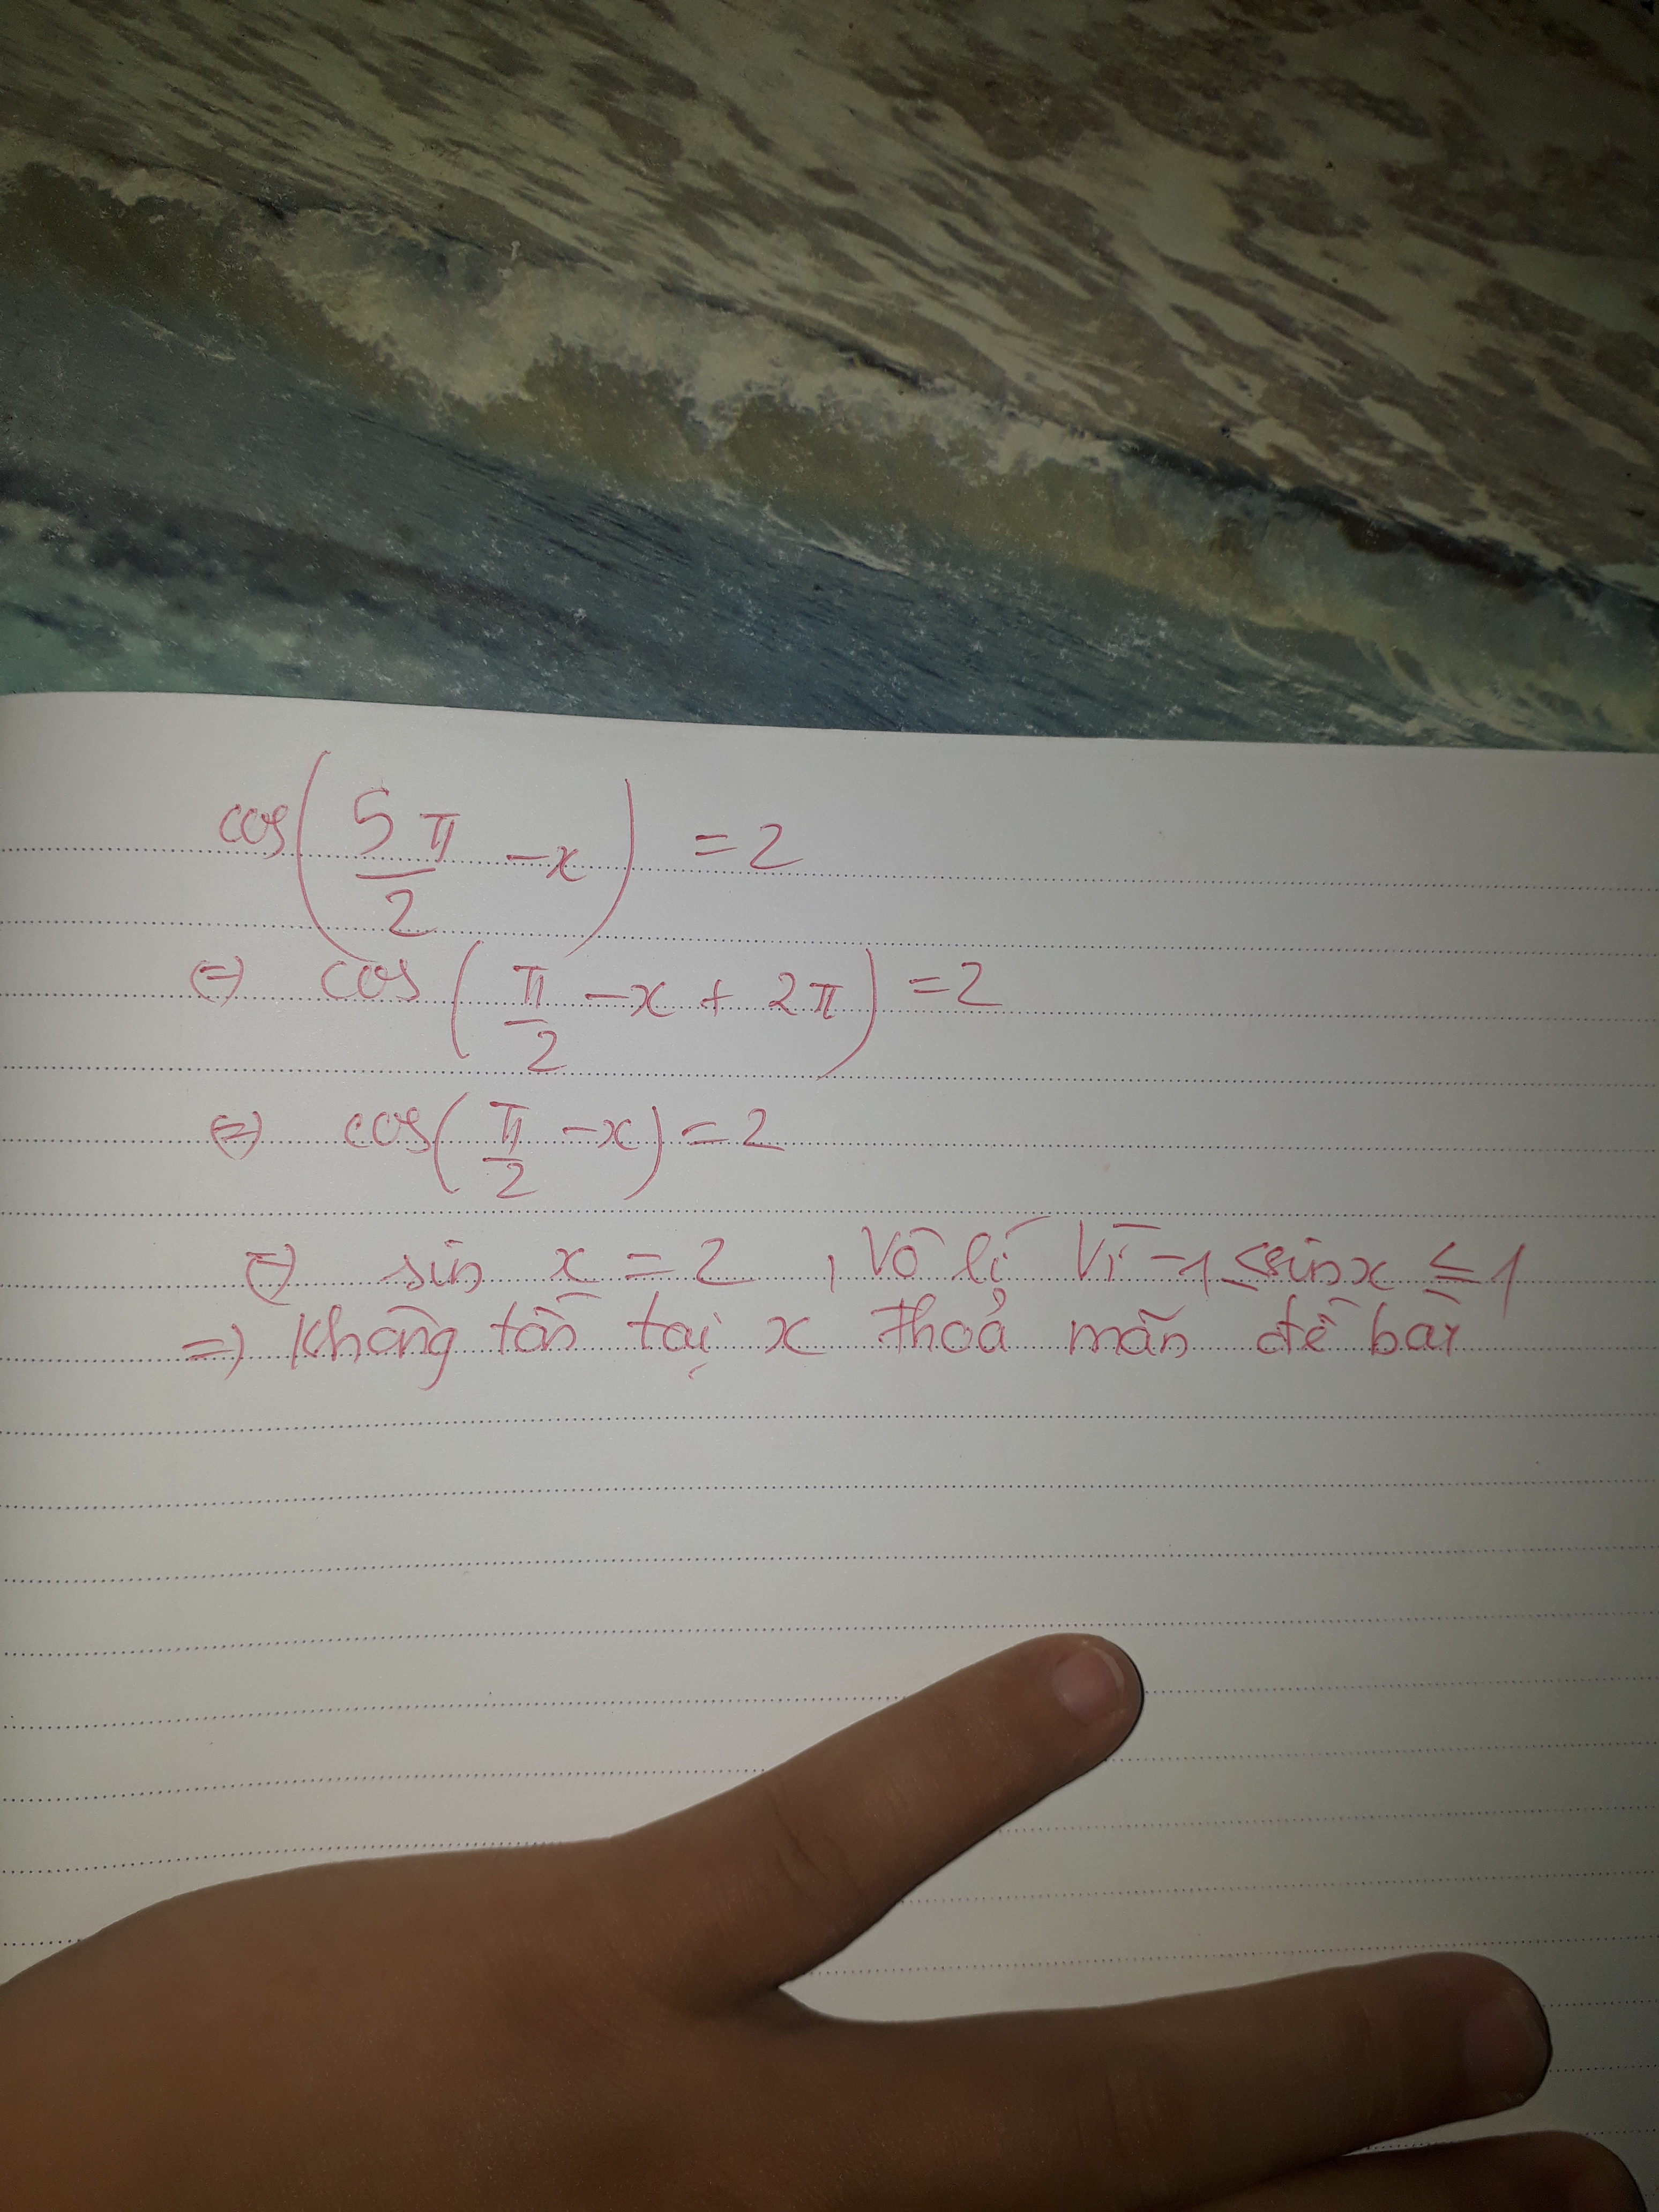 cos(5π/2 - x) = 2
⇔ cos(π/2 - x + 2π) = 2
⇔ cos(π/2 - x) = 2
⇔ sin x = 2 , Vô lí Vì -1 ≤ sin x ≤ 1
⇒ Không tồn tại x thoả mãn đề bài